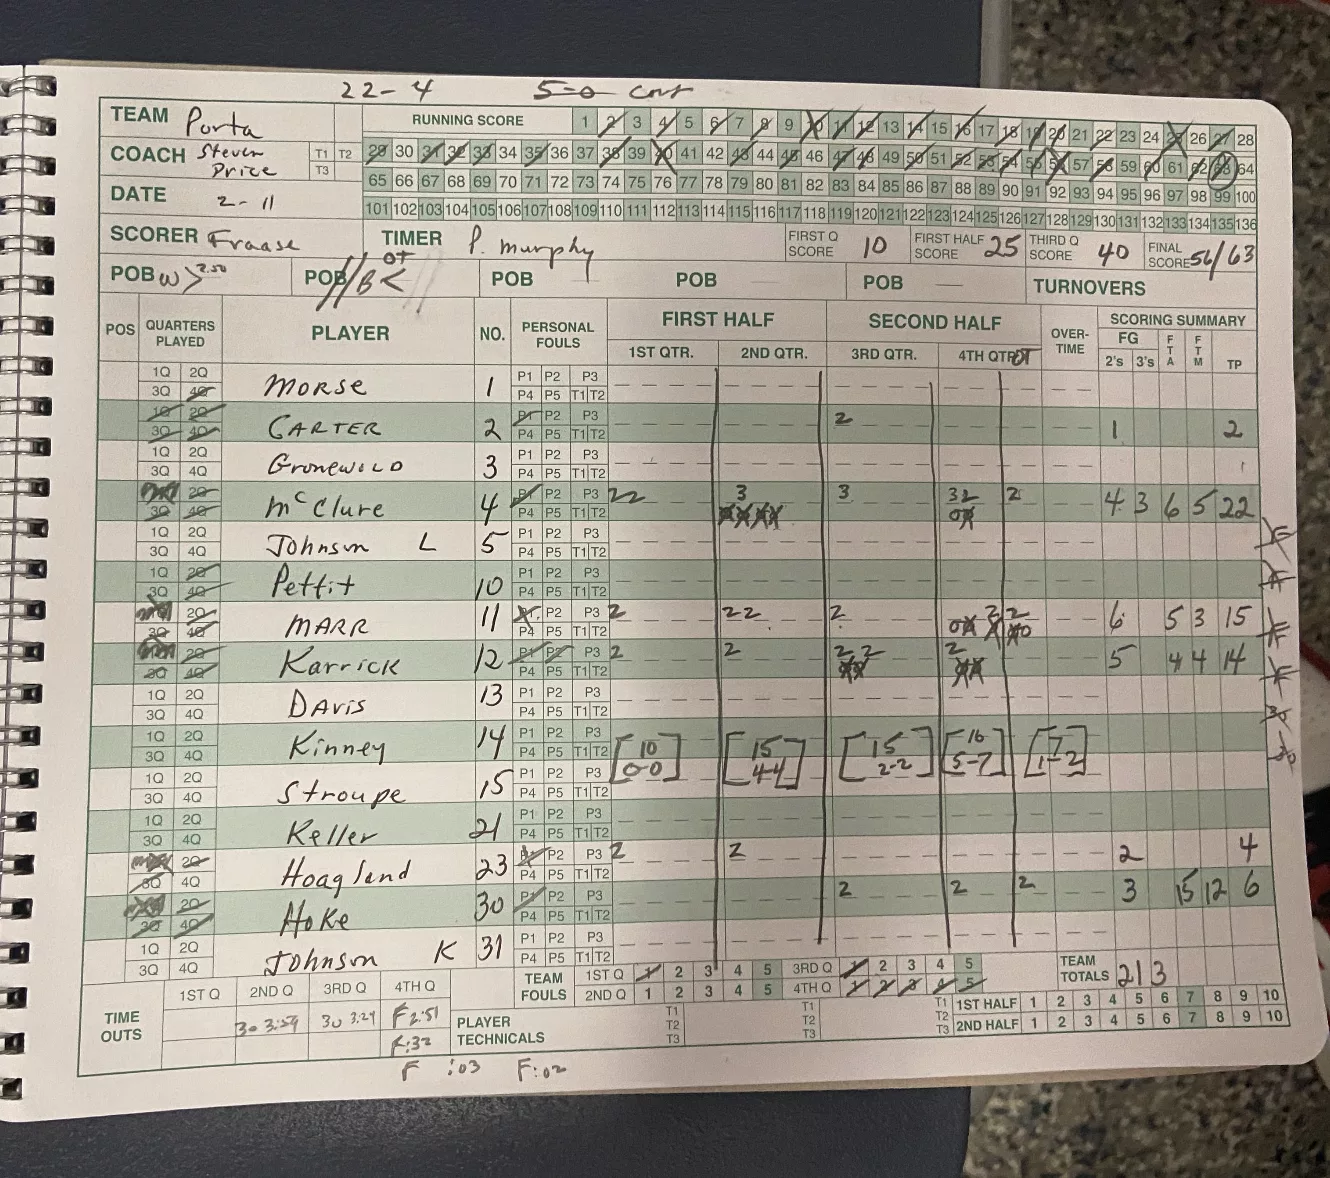 22-4 5-0 conf
TEAM Porta RUNNING SCORE 1 2 3 4 5 6 7 8 9 10 11 12 13 14 15 16 17 18 19 20 21 22 23 24 25 26 27 28
COACH Steven Price T1 T2 T3 29 30 31 32 33 34 35 36 37 38 39 40 41 42 43 44 45 46 47 48 49 50 51 52 53 54 55 56 57 58 59 60 61 62 63 64
65 66 67 68 69 70 71 72 73 74 75 76 77 78 79 80 81 82 83 84 85 86 87 88 89 90 91 92 93 94 95 96 97 98 99 100
DATE 2-11 101 102 103 104 105 106 107 108 109 110 111 112 113 114 115 116 117 118 119 120 121 122 123 124 125 126 127 128 129 130 131 132 133 134 135 136
SCORER Fraase TIMER P. Murphy FIRST Q SCORE 10 FIRST HALF SCORE 25 THIRD Q SCORE 40 FINAL SCORE 56/63
POB W > 2:50 POB OT B < POB POB POB TURNOVERS
POS QUARTERS PLAYED PLAYER NO. PERSONAL FOULS FIRST HALF SECOND HALF OVER-TIME SCORING SUMMARY
1ST QTR. 2ND QTR. 3RD QTR. 4TH QTR OT FG 2's 3's FTA FTM TP
1Q 2Q 3Q 4Q MORSE 1 P1 P2 P3 P4 P5 T1 T2
1Q 2Q 3Q 4Q CARTER 2 P1 P2 P3 P4 P5 T1 T2 2 1 2
1Q 2Q 3Q 4Q Gronewold 3 P1 P2 P3 P4 P5 T1 T2
2Q 3Q 4Q McClure 4 P1 P2 P3 P4 P5 T1 T2 22 3 3 32 2 4 3 6 5 22
1Q 2Q 3Q 4Q Johnson L 5 P1 P2 P3 P4 P5 T1 T2
1Q 2Q 3Q 4Q Pettit 10 P1 P2 P3 P4 P5 T1 T2
2Q 3Q 4Q MARR 11 P1 P2 P3 P4 P5 T1 T2 2 22 2 2 2 6 5 3 15
2Q 3Q 4Q Karrick 12 P1 P2 P3 P4 P5 T1 T2 2 2 2 2 2 5 4 4 14
1Q 2Q 3Q 4Q DAVIS 13 P1 P2 P3 P4 P5 T1 T2
1Q 2Q 3Q 4Q Kinney 14 P1 P2 P3 P4 P5 T1 T2 [10 0-0] [15 4-4] [15 2-2] [16 5-7] [7 1-2]
1Q 2Q 3Q 4Q Stroupe 15 P1 P2 P3 P4 P5 T1 T2
1Q 2Q 3Q 4Q Keller 21 P1 P2 P3 P4 P5 T1 T2
2Q 3Q 4Q Hoagland 23 P1 P2 P3 P4 P5 T1 T2 2 2 2 4
2Q 3Q 4Q Hoke 30 P1 P2 P3 P4 P5 T1 T2 2 2 2 3 15 12 6
1Q 2Q 3Q 4Q Johnson K 31 P1 P2 P3 P4 P5 T1 T2
TIME OUTS 1ST Q 2ND Q 3RD Q 4TH Q TEAM FOULS 1ST Q 1 2 3 4 5 3RD Q 1 2 3 4 5 TEAM TOTALS 21 3
2ND Q 1 2 3 4 5 4TH Q 1 2 3 4 5
30 3:59 30 3:24 F 2:51 PLAYER TECHNICALS T1 T2 T3 T1 T2 T3 T1 T2 T3 1ST HALF 1 2 3 4 5 6 7 8 9 10
F:32 2ND HALF 1 2 3 4 5 6 7 8 9 10
F :03 F:02